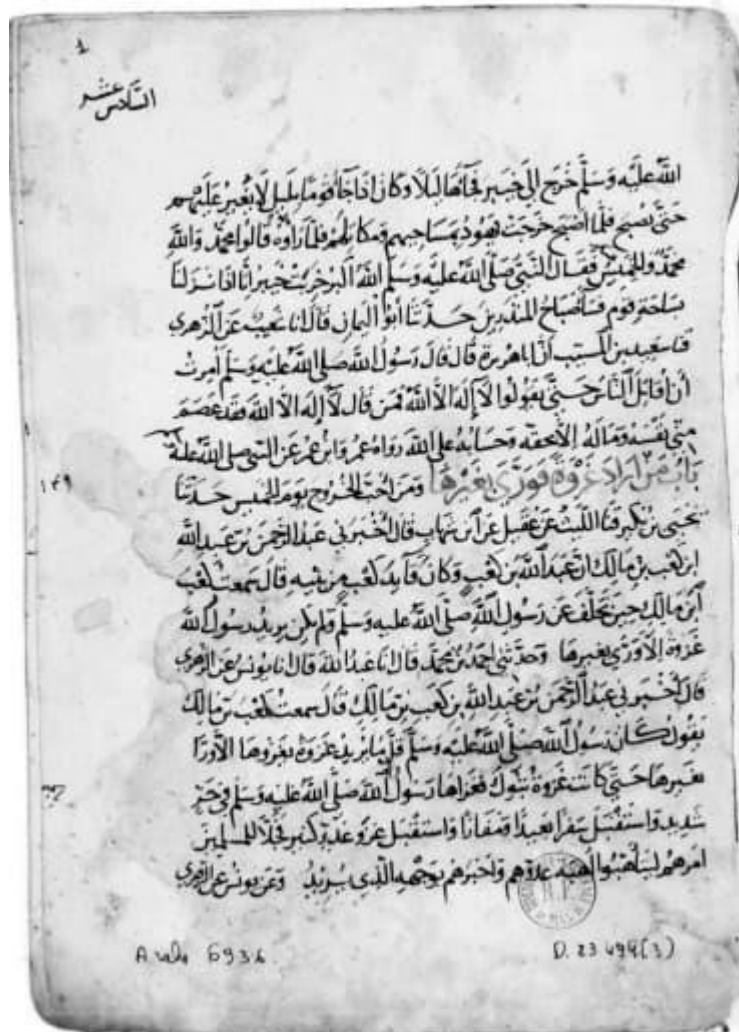 1
السادس عشر
الله عليه وسلم خرج الى خيبر فجاها ليلا وكان اذا جا قوما بليل لا يغير عليهم
حتى يصبح فلما اصبح خرجت يهود بمساحيهم ومكاتلهم فلما راوه قالوا محمد والله
محمد والخميس فقال النبي صلى الله عليه وسلم الله اكبر خربت خيبر انا اذا نزلنا
بساحة قوم فساء صباح المنذرين حدثنا ابو اليمان قال انا شعيب عن الزهري
ثنا سعيد بن المسيب ان ابا هريرة قال قال رسول الله صلى الله عليه وسلم امرت
ان اقاتل الناس حتى يقولوا لا اله الا الله فمن قال لا اله الا الله فقد عصم
مني نفسه وماله الا بحقه وحسابه على الله رواه عمر وابن عمر عن النبي صلى الله عليه
باب من اراد غزوة فورى بغيرها ومن احب الخروج يوم الخميس حدثنا
يحيى بن بكير ثنا الليث عن عقيل عن ابن شهاب قال اخبرني عبد الرحمن بن عبد الله
ابن كعب بن مالك ان عبد الله بن كعب وكان قايد كعب من بنيه قال سمعت كعب
ابن مالك حين تخلف عن رسول الله صلى الله عليه وسلم ولم يكن يريد رسول الله
غزوة الا ورى بغيرها وحدثني احمد بن محمد قال انا عبد الله قال انا يونس عن الزهري
قال اخبرني عبد الرحمن بن عبد الله بن كعب بن مالك قال سمعت كعب بن مالك
يقول كان رسول الله صلى الله عليه وسلم قل ما يريد غزوة يغزوها الا ورا
بغيرها حتى كانت غزوة تبوك فغزاها رسول الله صلى الله عليه وسلم في حر
شديد واستقبل سفرا بعيدا ومفازا واستقبل غزو عدو كثير فجلا للمسلمين
امرهم ليتاهبوا اهبة عدوهم واخبرهم بوجهه الذي يريد وعن يونس عن الزهري
١٤٩
Arabe 6936
D. 23 494(3)